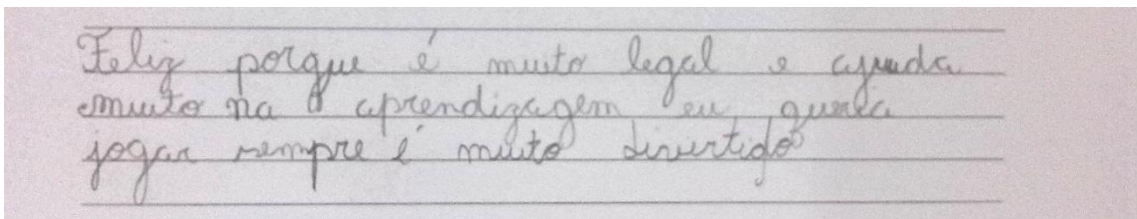 Feliz porque é muito legal e ajuda
muito na aprendizagem eu queria
jogar sempre é muito divertido